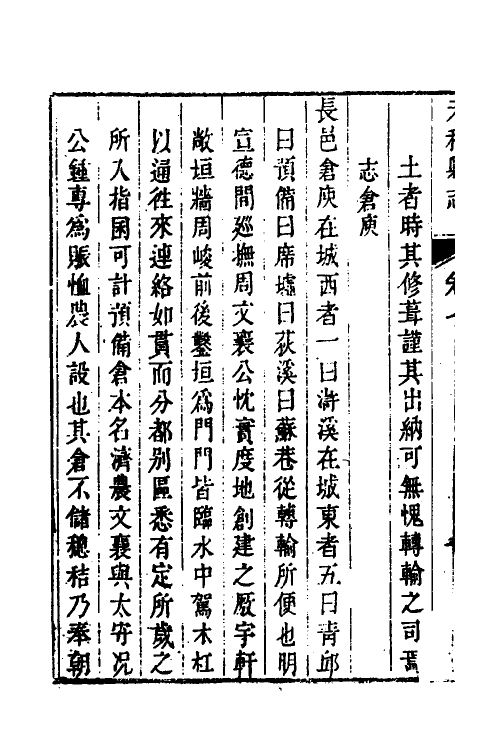 長洲縣志
卷七
土者時其修葺謹其出納可無愧轉輸之司焉
志倉庾
長邑倉庾在城西者一曰滸溪在城東者五曰青邱
曰預備曰席墟曰荻溪曰蘇巷從轉輸所便也明
宣德間廵撫周文襄公忱實度地創建之厫宇軒
敞垣牆周峻前後鑿垣為門門皆臨水中駕木杠
以通徃來連絡如貫而分都別區悉有定所歲之
所入指囷可計預備倉本名濟農文襄與太守况
公鍾專為賑恤農人設也其倉不儲穗秸乃奉朝